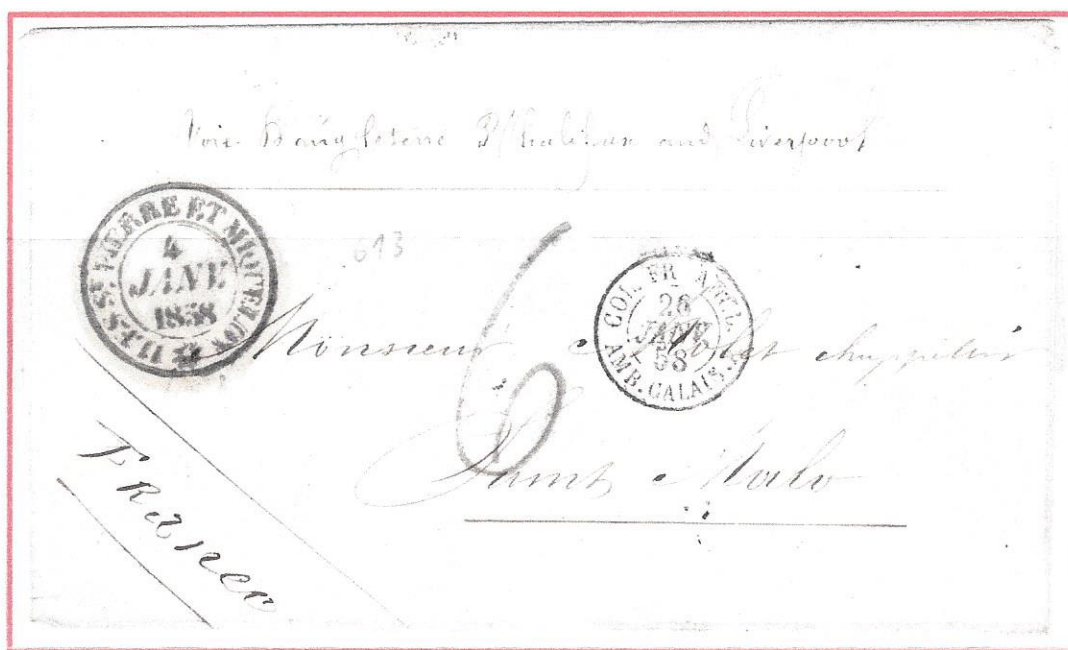 Voie D'angleterre Halifax and Liverpool
ILES ST. PIERRE ET MIQUELON
4
JANV.
1858
613
6
COL. FR. ANGL.
26
JANV.
58
AMB. CALAIS.
Monsieur
Saint Malo
France